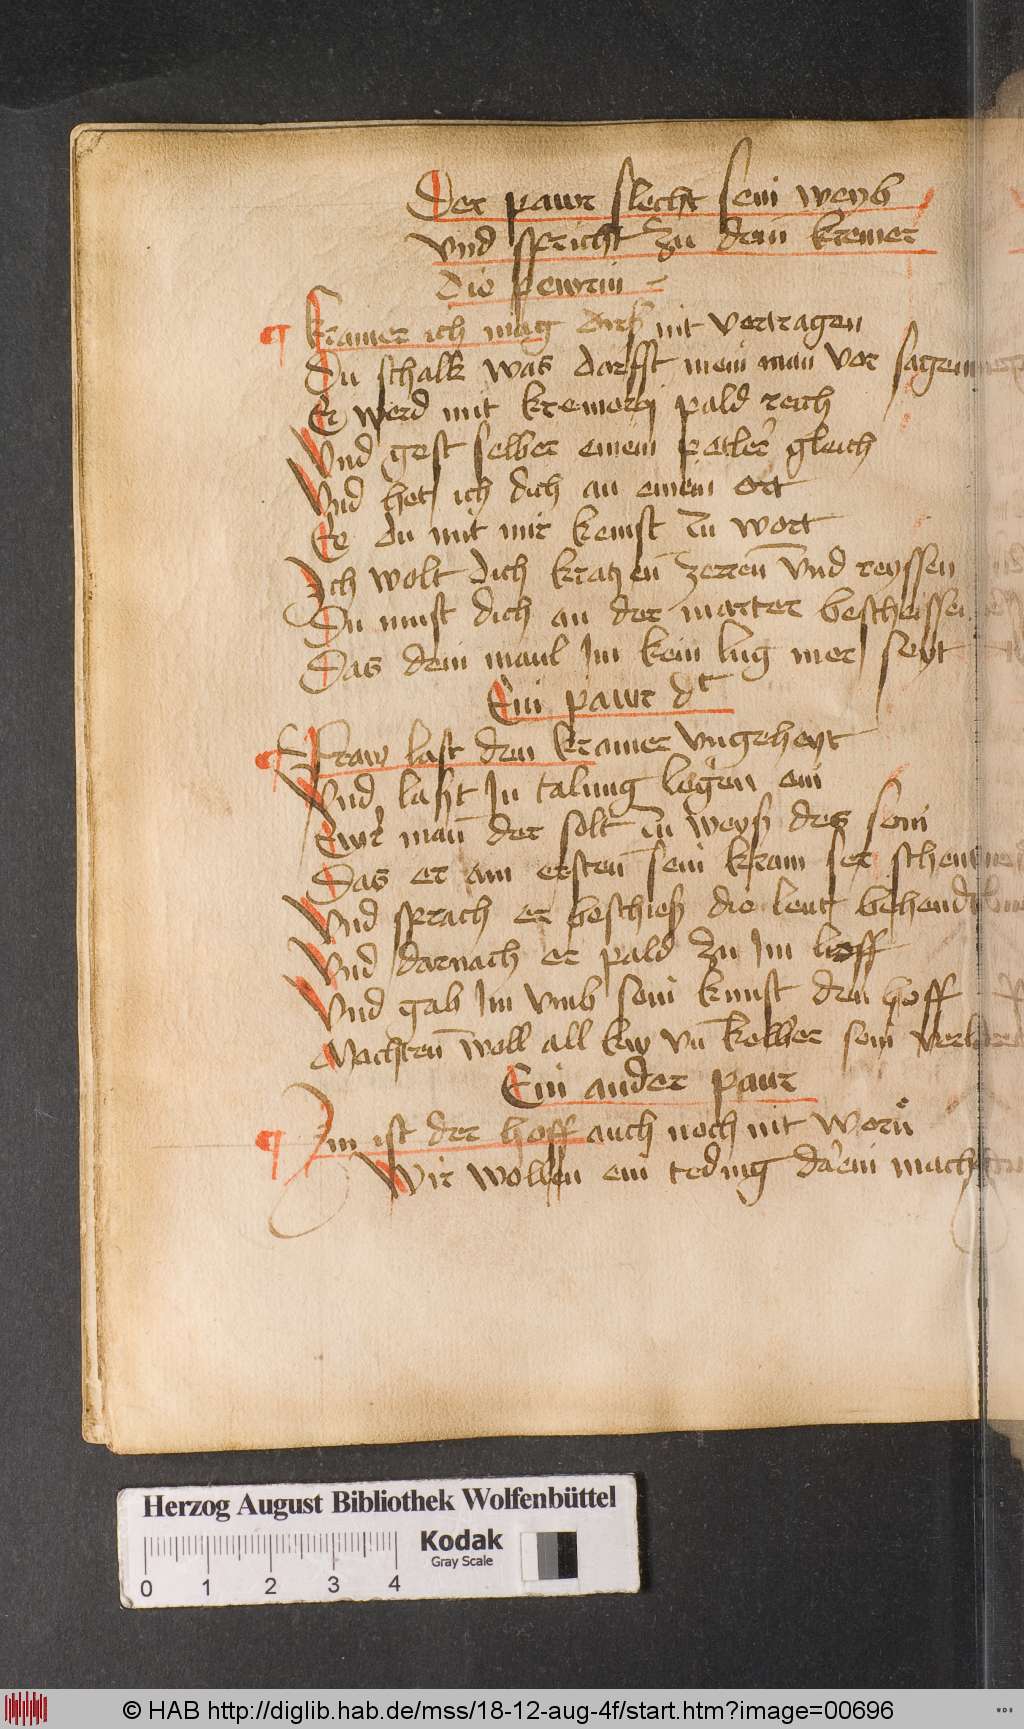 Der pawr slecht sein weyb
vnd spricht zu dem kremer
Die pewrin
Kramer ich mag dirß nit vertragen
Du schalk was darfft mein man vor sagen
Er werd mit kremerej pald reich
Vnd gest selber einem petler gleich
Vnd het ich dich an einem ort
Ee du mit mir kemst zu wort
Ich wolt dich kratzen zerren vnd reyssen
Du must dich an der marter bescheissen
Das dein maul im kein lug mer seyt
Ein pawr dt
Fraw last den kramer vngeheyt
Vnd laßt In talung legen ein
Ewr man der solt zu weyß des sein
Das er am ersten sein kram
Vnd sprach er beschieß die leut behend
Vnd darnach er pald zu Im lieff
Vnd gab Im vmb sein kunst den hoff
Mechten woll all kw vn kelber sein
Ein ander paur
Im ist der hoff auch noch nit worn
Wir wollen ein teding darein
Herzog August Bibliothek Wolfenbüttel
Kodak
Gray Scale
0 1 2 3 4
© HAB http://diglib.hab.de/mss/18-12-aug-4f/start.htm?image=00696